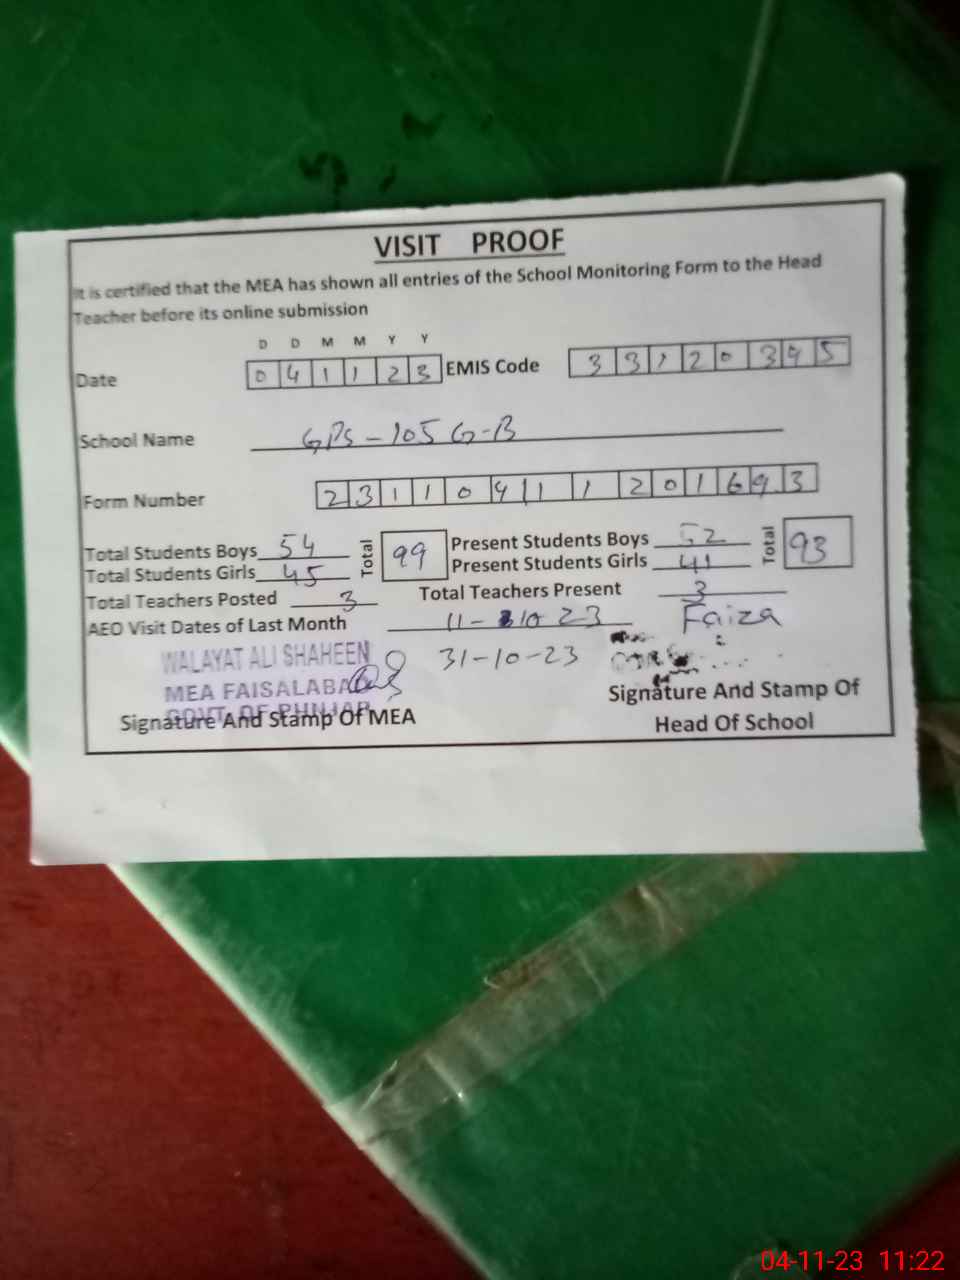 VISIT PROOF
It is certified that the MEA has shown all entries of the School Monitoring Form to the Head
Teacher before its online submission
D D M M Y Y
Date 0 4 1 1 2 3 EMIS Code 3 3 1 2 0 3 4 5
School Name GPS - 105 G-B
Form Number 2 3 1 1 0 4 1 1 2 0 1 6 9 3
Total Students Boys 54 Total 99 Present Students Boys 52 Total 93
Total Students Girls 45 Present Students Girls 41
Total Teachers Posted 3 Total Teachers Present 3
AEO Visit Dates of Last Month 11-10-23 Faiza
31-10-23
WALAYAT ALI SHAHEEN
MEA FAISALABAD
GOVT. OF PUNJAB
Signature And Stamp Of MEA
Signature And Stamp Of
Head Of School
04-11-23 11:22